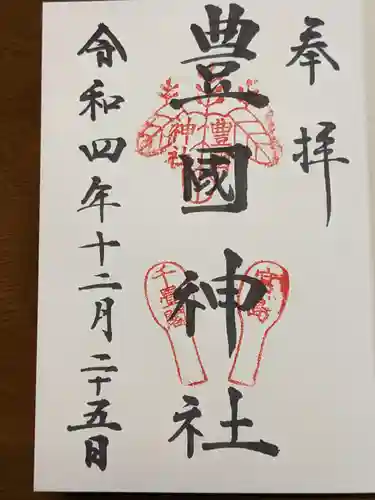 奉拝
豊國神社
豊國
神社
千畳閣
宮島
令和四年十二月二十五日